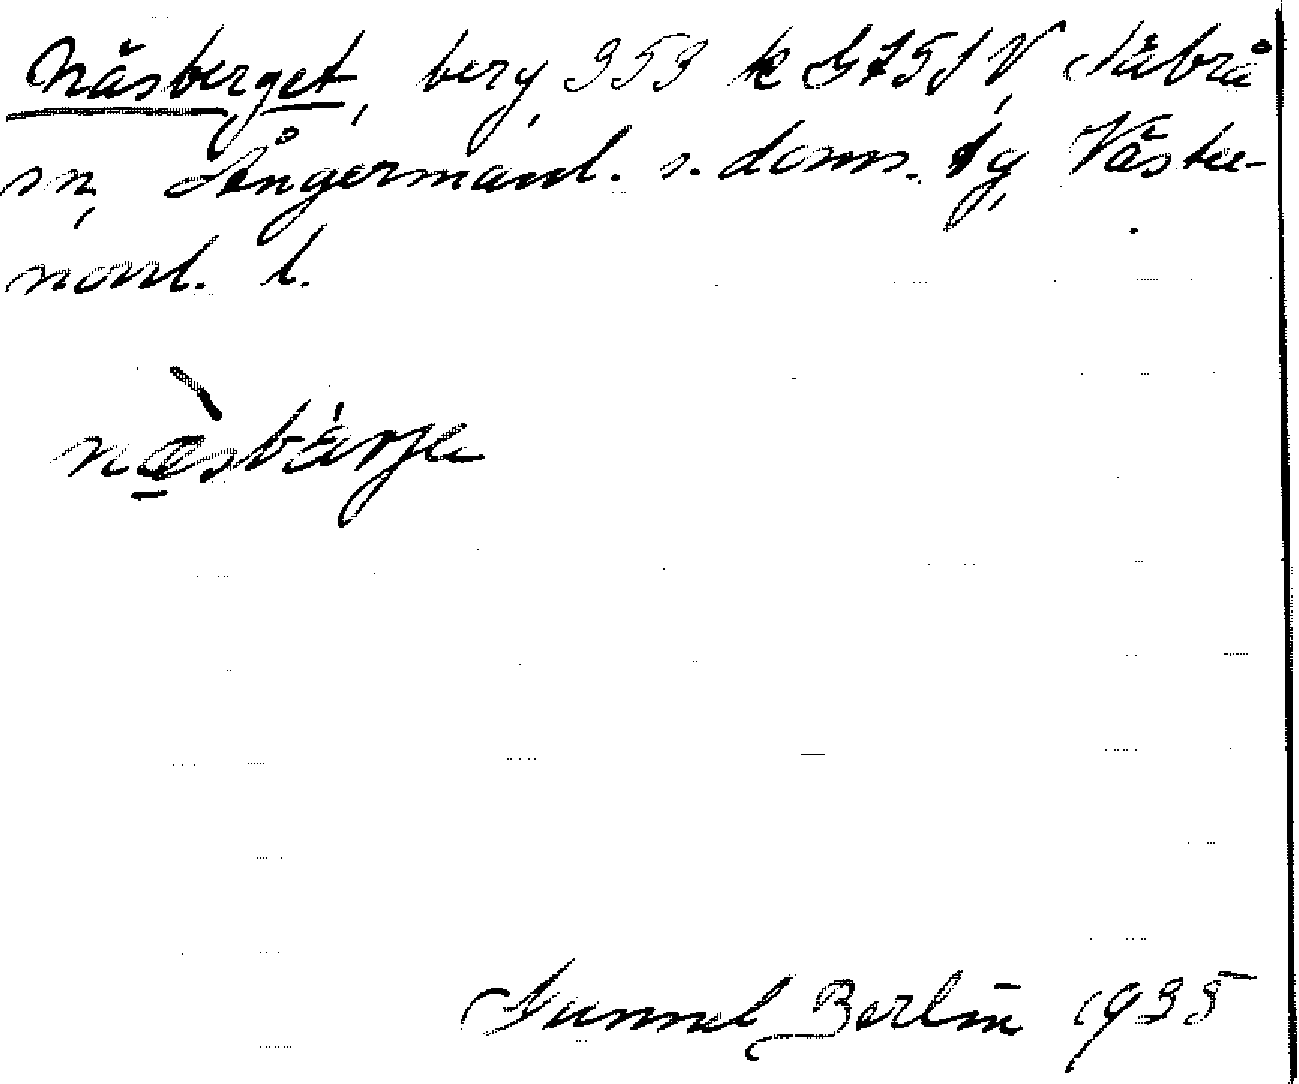 Näsberget, berg, 353 k G751V, Säbrå
sn, Ångermanl. s. doms. tg, Väster-
norrl. l.
næ̀sbárje
Gunnel Berlin 1935